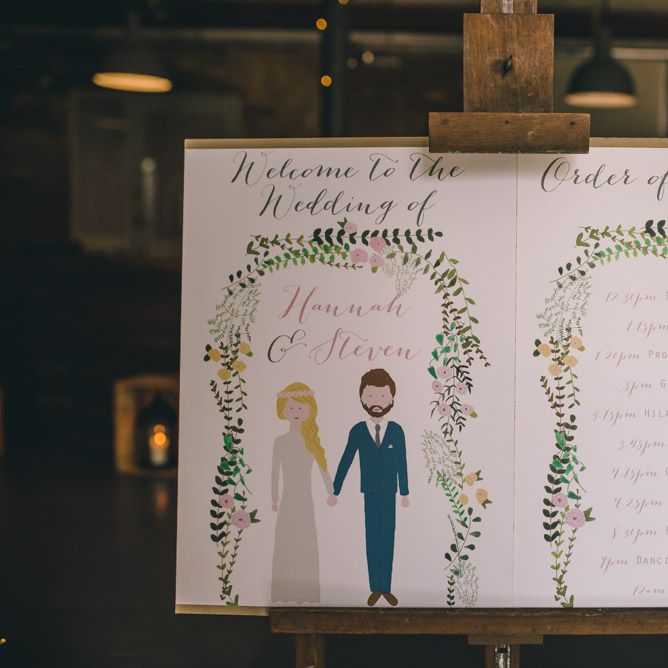 Welcome to the
Wedding of
Hannah
& Steven
Order of
12.30pm
1.15pm
1.20pm PRO
3pm G
3.15pm HILA
3.45pm
4.15pm
4.25pm
8.30pm
9pm DANCI
12am